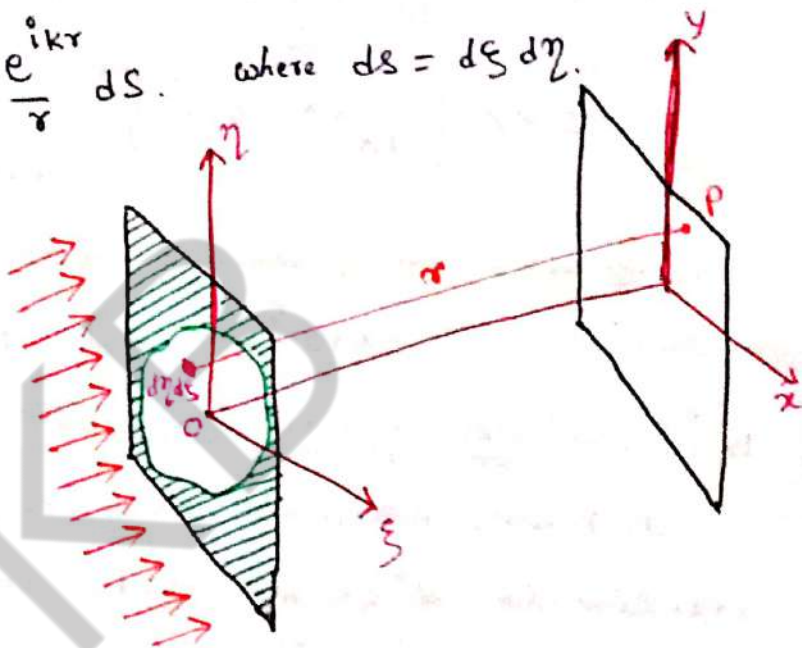 e^{ikr}/r ds. where ds = dξ dη.
y
η
P
r
dηdξ
O
x
ξ